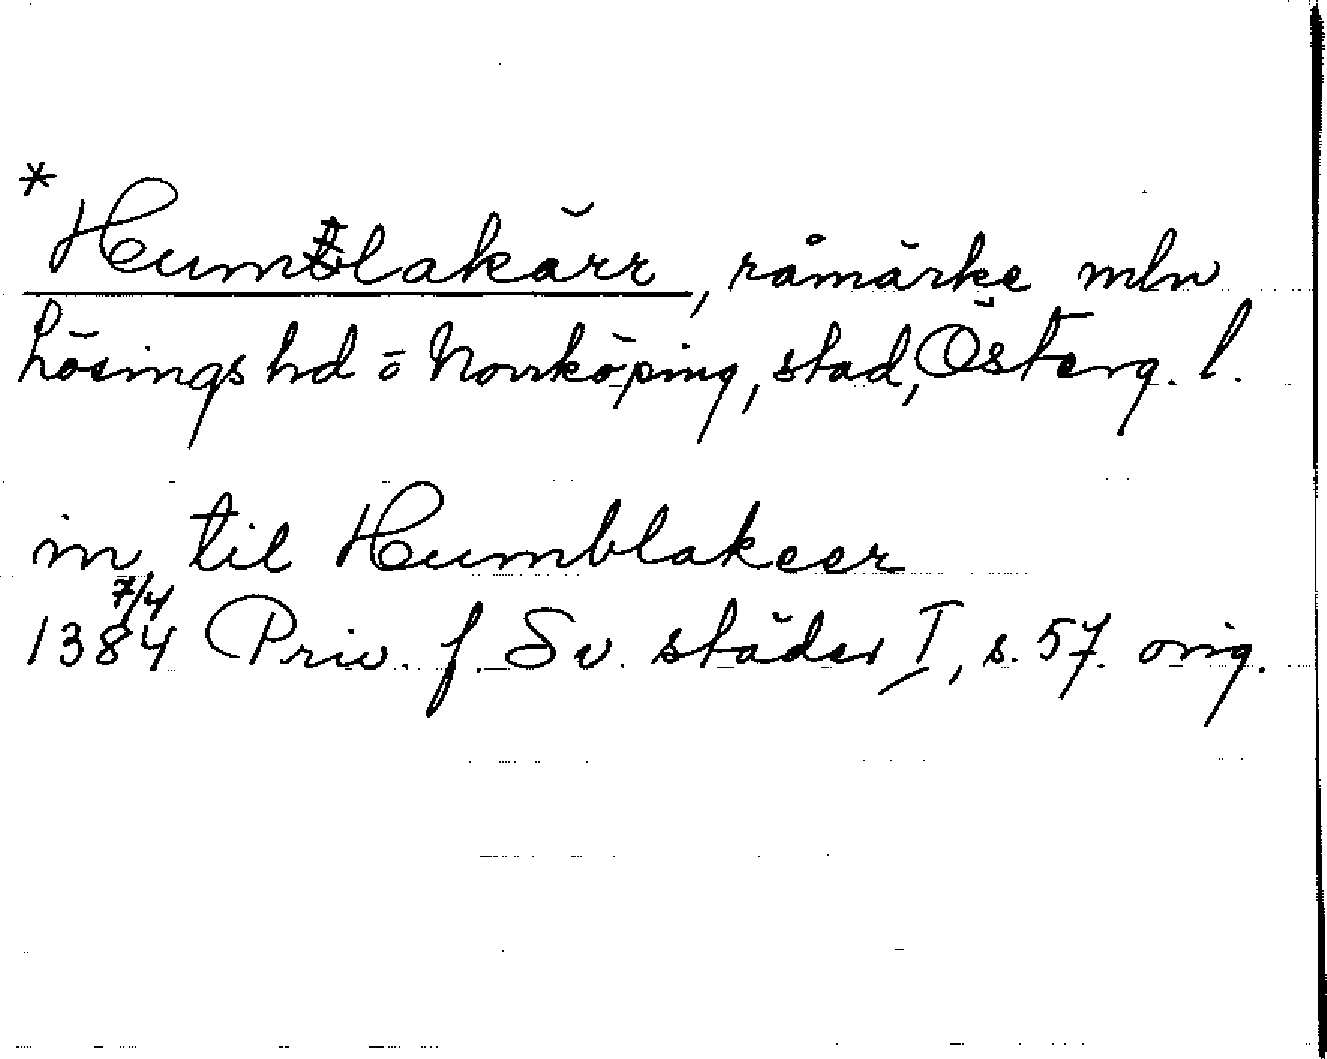 *
Humblakärr, råmärke mln
Lösings hd o Norrköping, stad, Österg. l.
in til Humblakeer
7/4
1384 Priv. f. Sv. städer I, s. 57. orig.